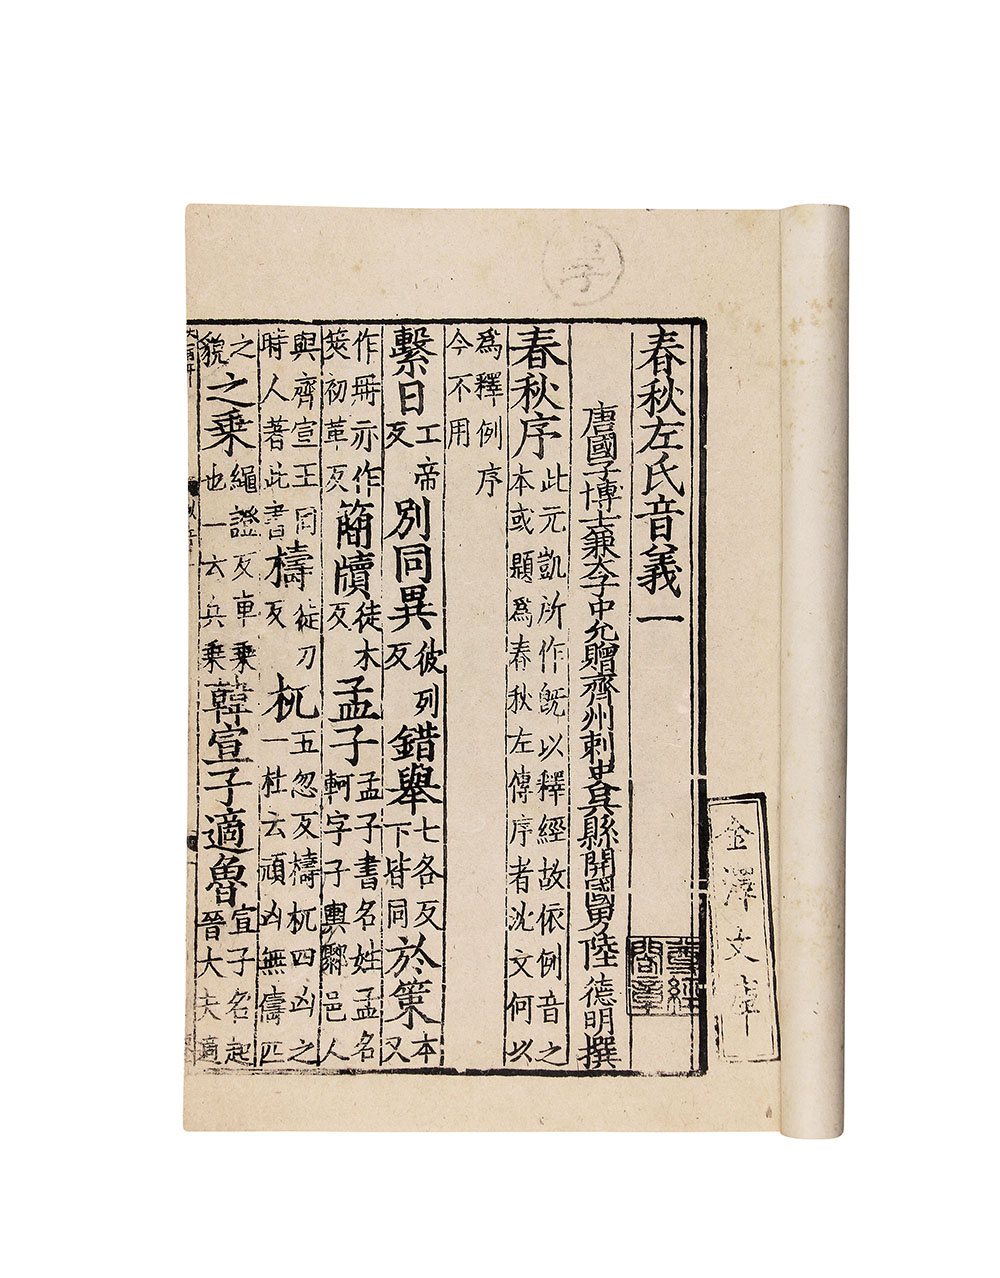 春秋左氏音義一
唐國子博士兼太子中允贈齊州刺史吳縣開國男陸德明撰
春秋序此元凱所作旣以釋經故依例音之本或題爲春秋左傳序者沈文何以
爲釋例序今不用
繫日工帝反別同異彼列反錯舉七各反下皆同於策本又
作冊亦作筴初革反簡牘徒木反孟子孟子書名姓孟名軻字子輿鄒邑人
與齊宣王同時人著此書檮徒刀反杌五忽反檮杌四凶之一杜云頑凶無儔匹
之貌之乘繩證反車乘也一云兵乘韓宣子適魯宣子名起晉大夫適
金澤文庫
尊經閣章